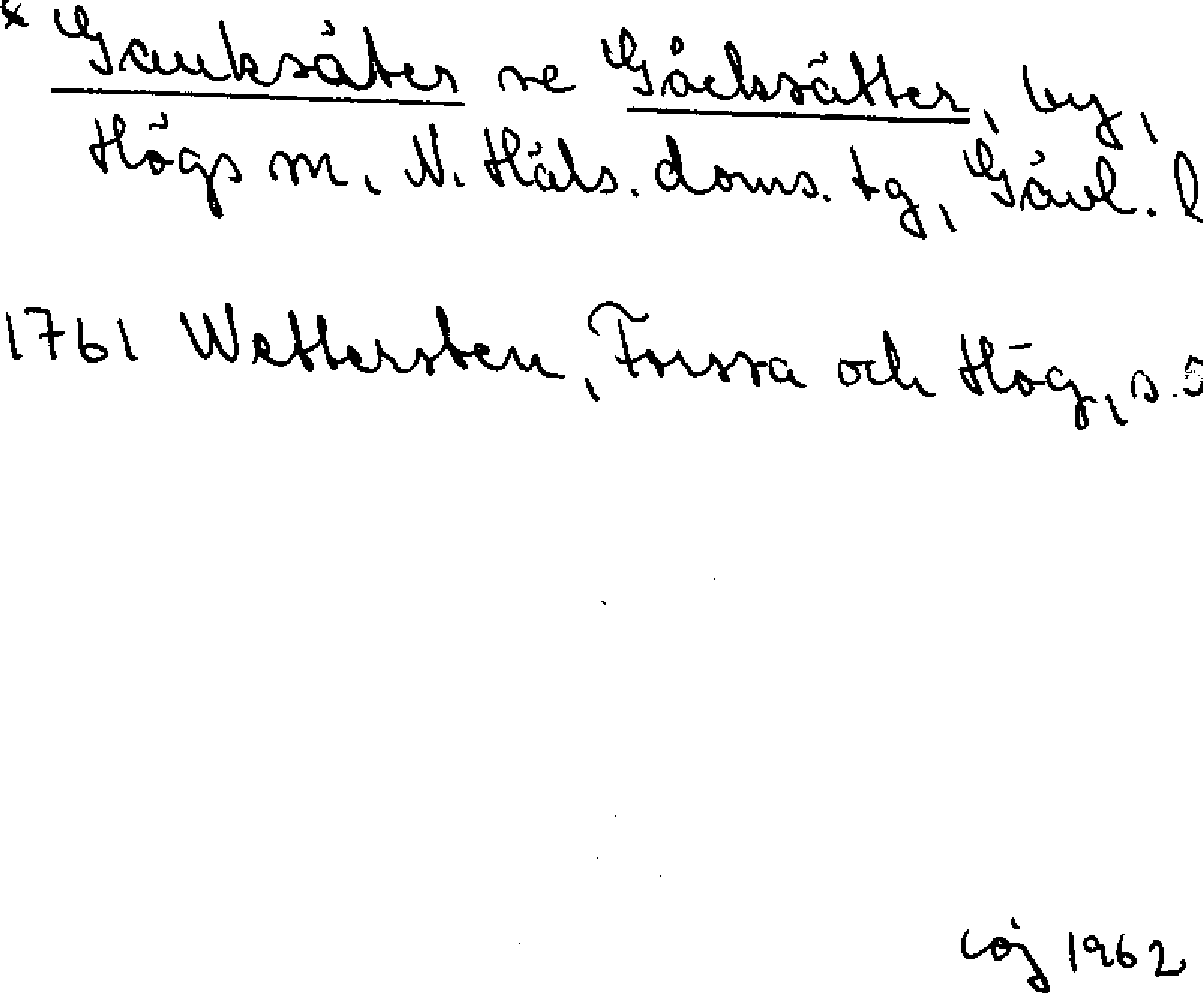 * Gauksäter se Gåcksätter, by,
Högs sn, N. Häls. doms. tg, Gävl. l
1761 Wettersten, Forssa och Hög, s. 5
coj 1962